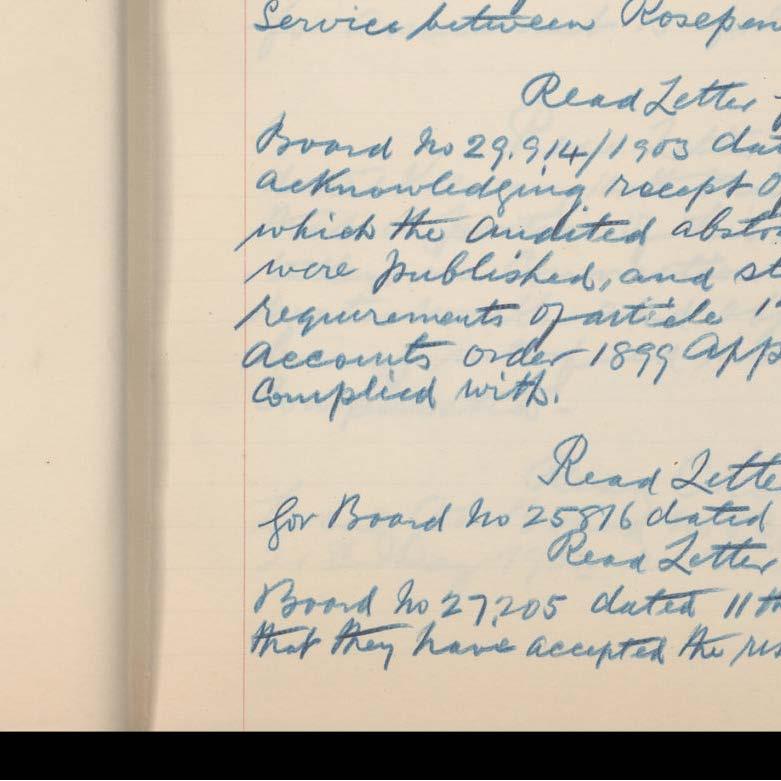 Service between Rosepen
Read Letter f
Board No 29.914/1903 dat
acknowledging receipt o
which the audited abstra
were published, and st
requirements of article 1
accounts order 1899 app
complied with.
Read Lette
for Board No 25816 dated
Read Letter
Board No 27,205 dated 11th
that they have accepted the res